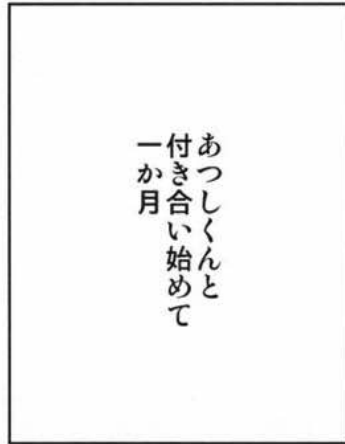 あつしくんと
付き合い始めて
一か月